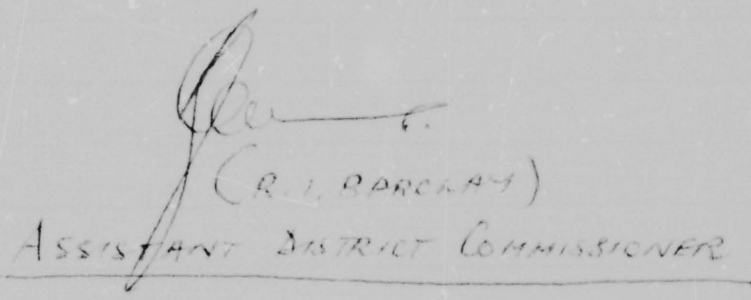 (R. I. BARCLAY)
ASSISTANT DISTRICT COMMISSIONER